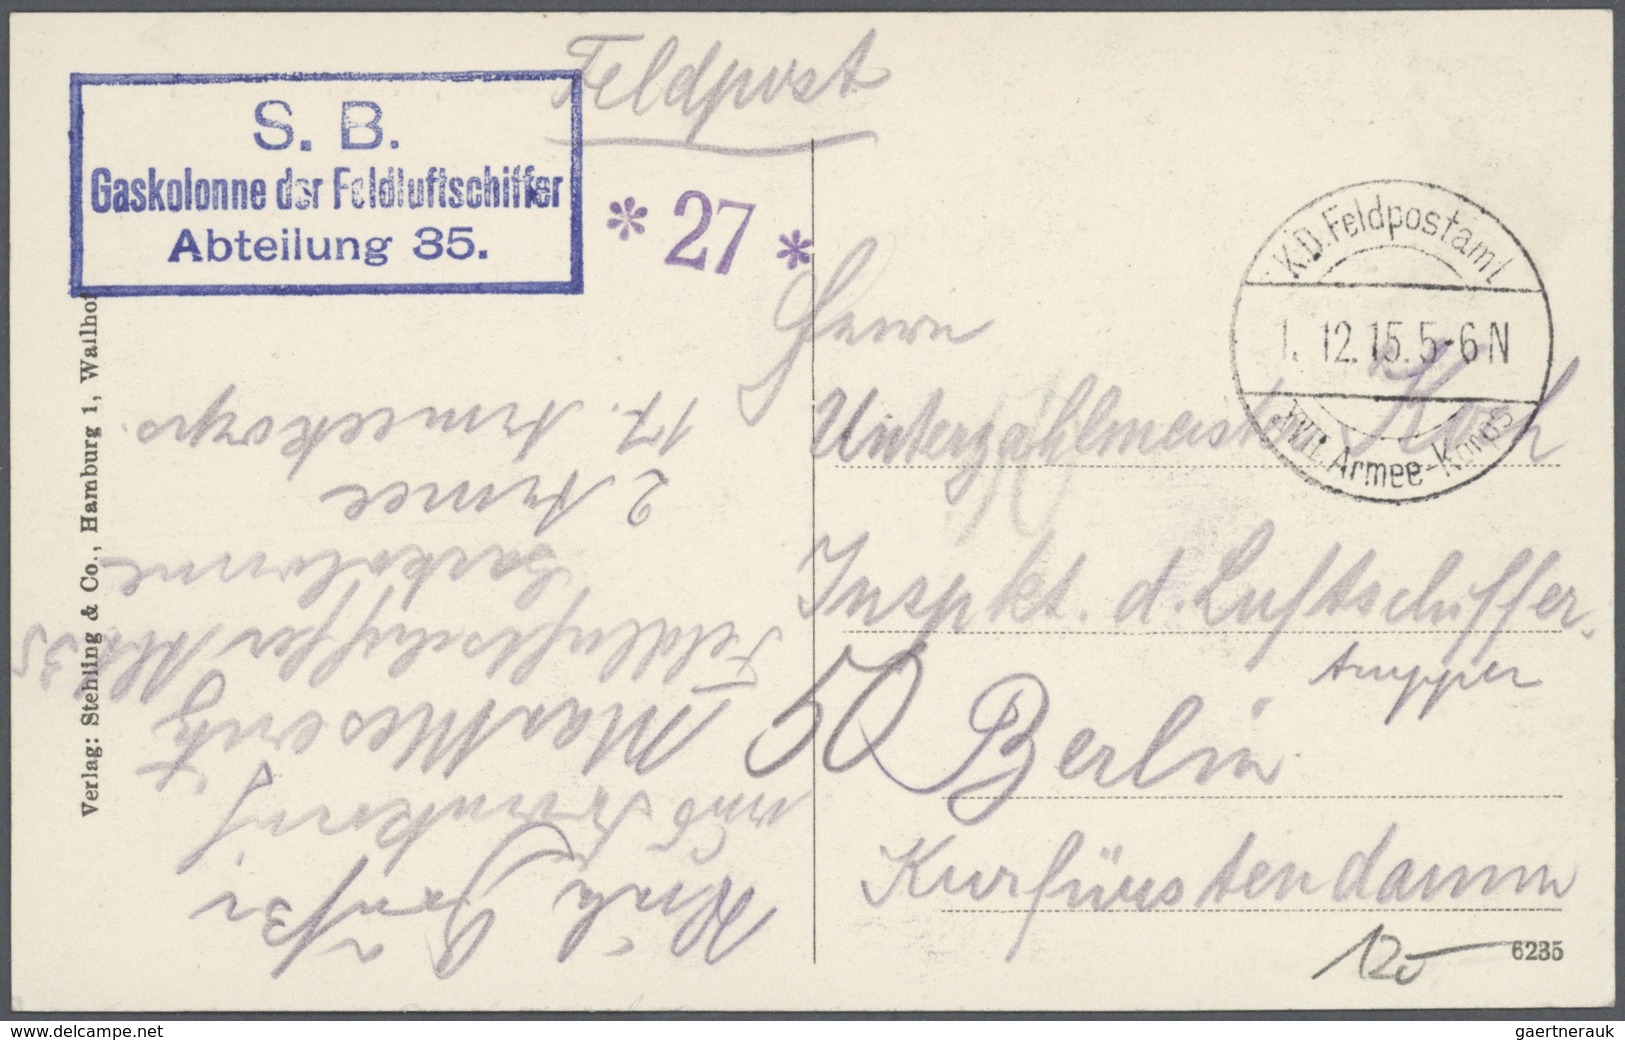 Feldpost
S. B.
Gaskolonne der Feldluftschiffer
Abteilung 35.
* 27 *
K.D. Feldpostamt
1. 12. 15. 5-6 N
XVII. Armee-Korps
Herrn
Unterzahlmeister Koch
Inspkt. d. Luftschiffer-
truppen
Berlin
Kurfürstendamm
50
und
Max
Feldluftschiffer Abt. 35
Gaskolonne
2. Armee
17. Armeekorps.
Verlag: Stehling & Co., Hamburg 1, Walhof
120
6235
delcampe.net
gaertnerauk